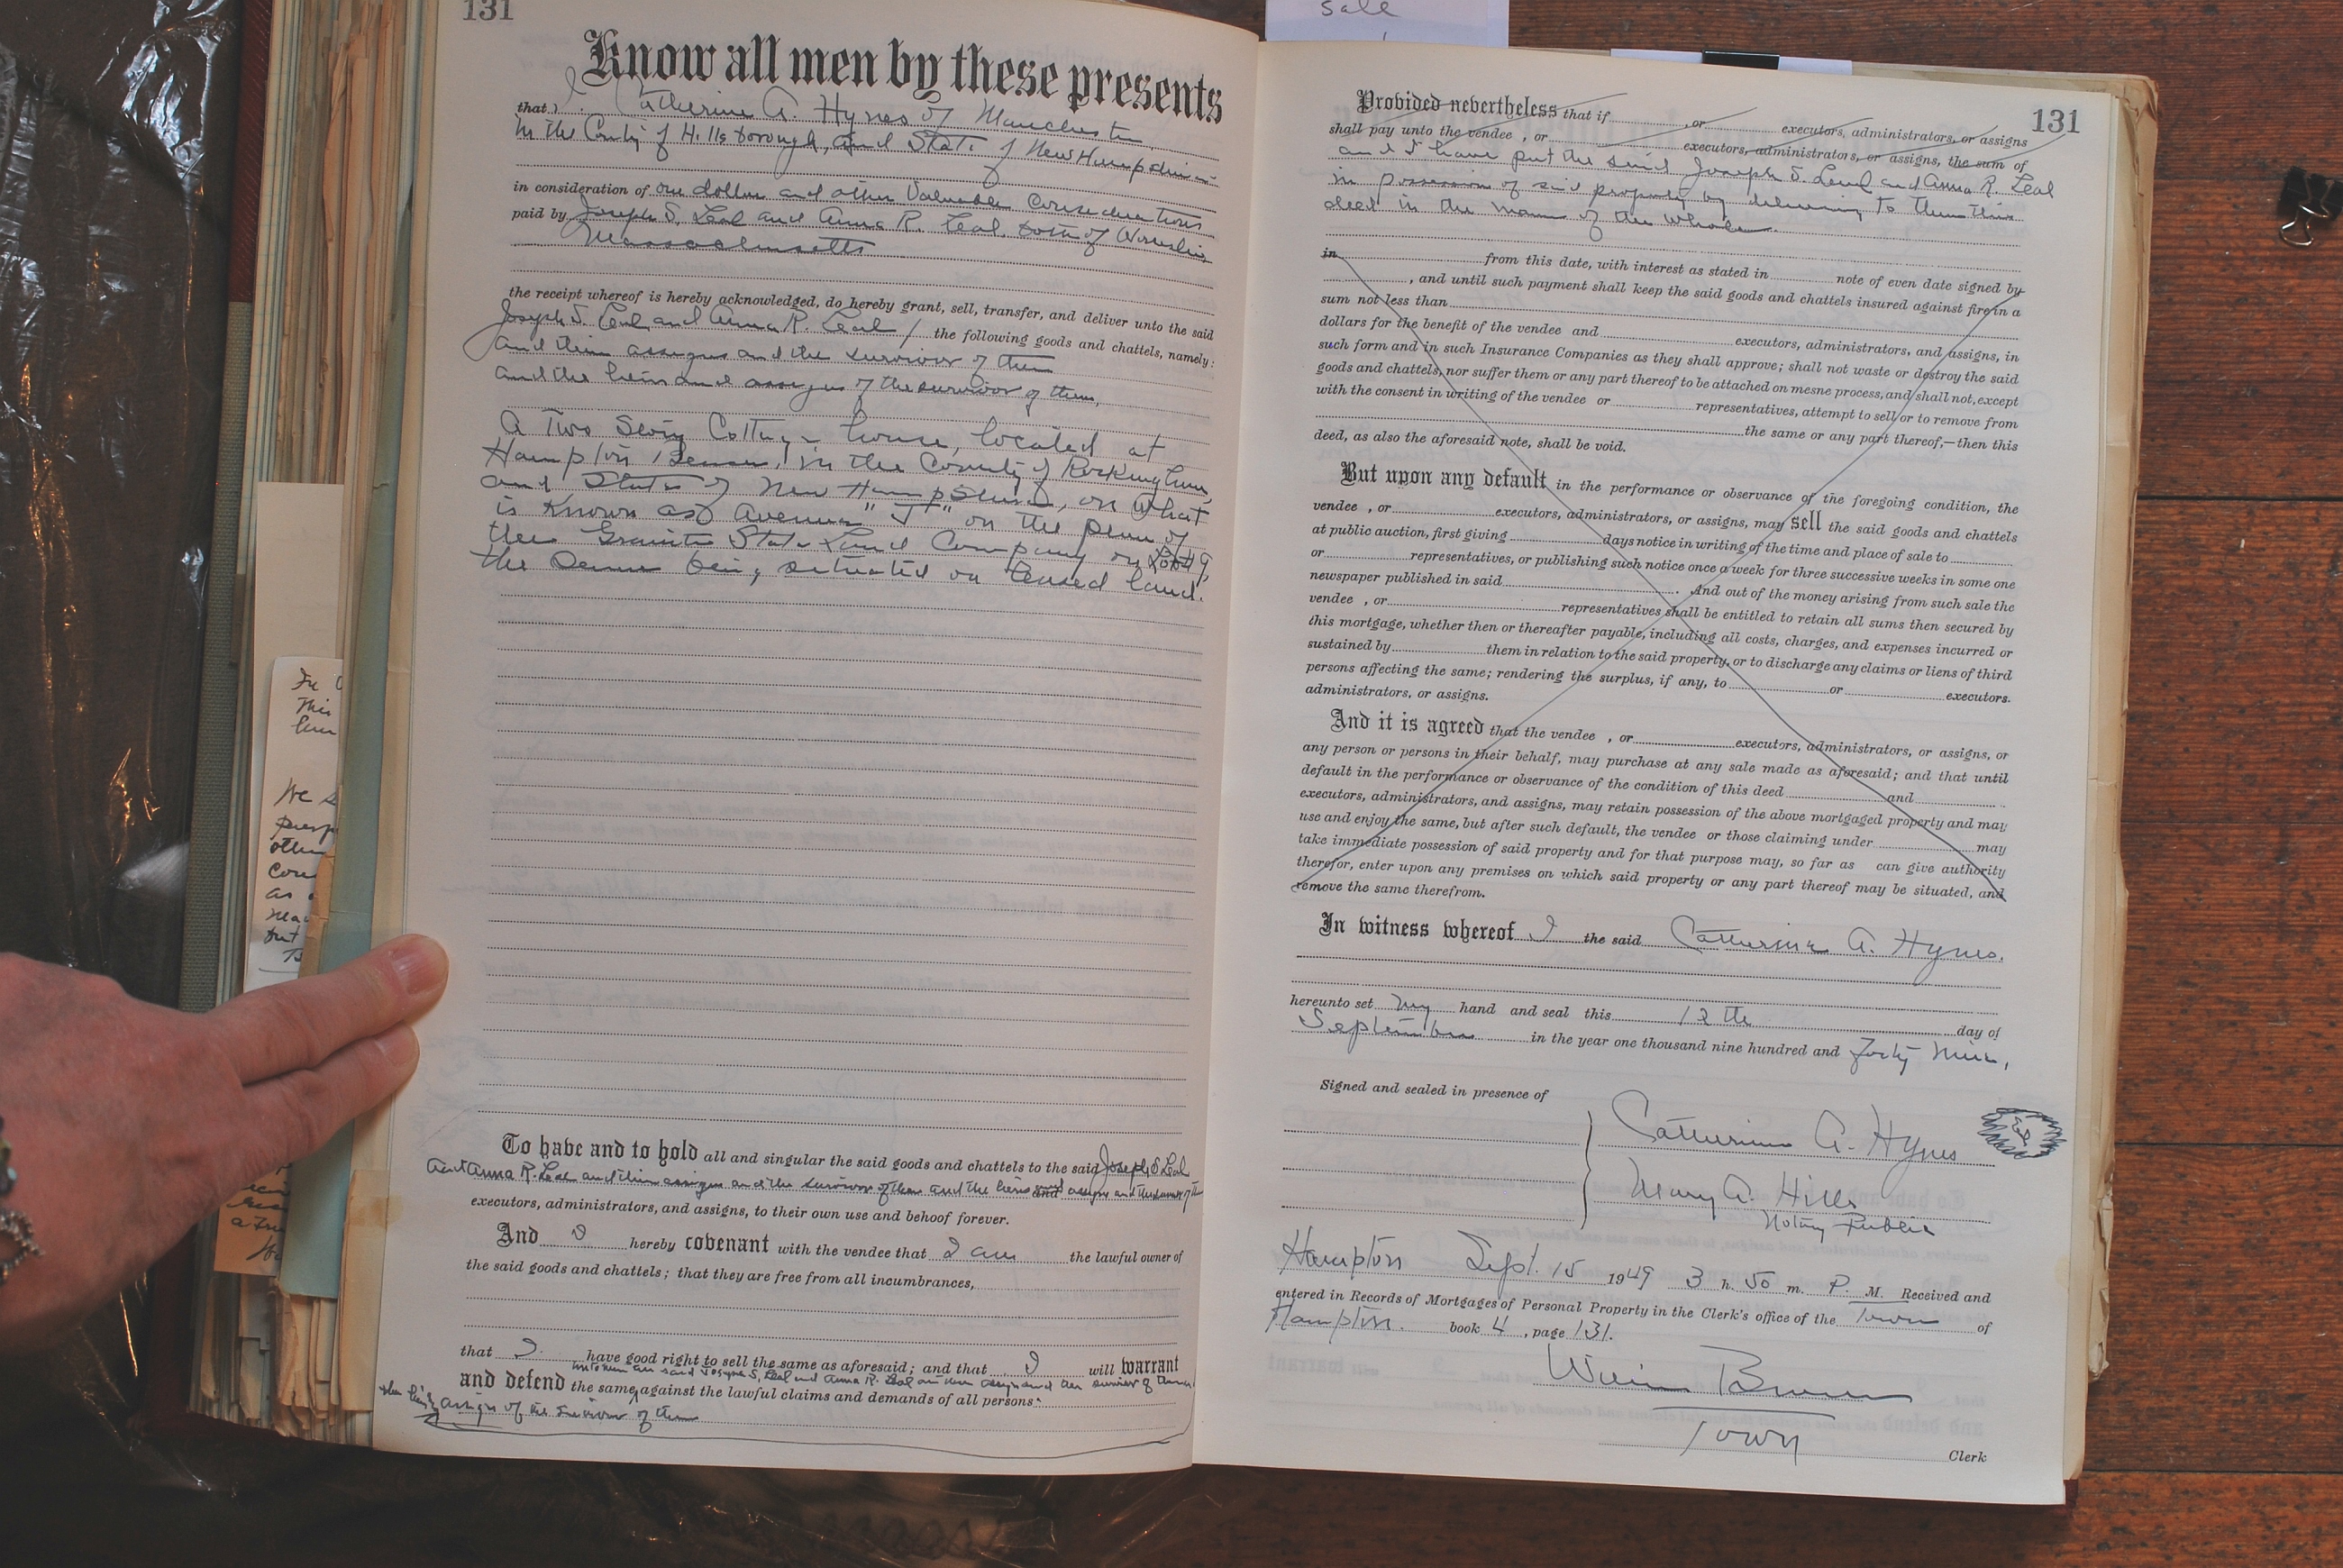 sale
131
Know all men by these presents
that I, Catherine A. Hynes of Manchester
in the County of Hillsborough, and State of New Hampshire
in consideration of one dollar and other Valuable Considerations
paid by Joseph S. Leal and Anna R. Leal, both of Worcester,
Massachusetts
the receipt whereof is hereby acknowledged, do hereby grant, sell, transfer, and deliver unto the said
Joseph S. Leal and Anna R. Leal / the following goods and chattels, namely:
and their assigns and the survivor of them
and the heirs and assigns of the survivor of them,
A Two Story Cottage house, located at
Hampton Beach, in the County of Rockingham,
and State of New Hampshire, on what
is known as Avenue "J" on the plan of
the Granite State Land Company on Lot 49,
the same being situated on leased land.
To have and to hold all and singular the said goods and chattels to the said Joseph S Leal
and Anna R. Leal and their assigns and the survivor of them and the heirs and assigns
executors, administrators, and assigns, to their own use and behoof forever.
And I hereby covenant with the vendee that I am the lawful owner of
the said goods and chattels; that they are free from all incumbrances,
that I have good right to sell the same as aforesaid; and that I will warrant
unto them the said Joseph S. Leal and Anna R. Leal and their assigns and the survivor of them
and defend the same, against the lawful claims and demands of all persons
assigns of the survivor of them
131
Provided nevertheless that if , or executors, administrators, or assigns
shall pay unto the vendee , or executors, administrators, or assigns, the sum of
and I have put the said Joseph S. Leal and Anna R. Leal
in possession of said property by delivering to them this
deed in the name of the whole.
in from this date, with interest as stated in note of even date signed by
, and until such payment shall keep the said goods and chattels insured against fire in a
sum not less than
dollars for the benefit of the vendee and executors, administrators, and assigns, in
such form and in such Insurance Companies as they shall approve; shall not waste or destroy the said
goods and chattels, nor suffer them or any part thereof to be attached on mesne process, and shall not, except
with the consent in writing of the vendee or representatives, attempt to sell or to remove from
the same or any part thereof,—then this
deed, as also the aforesaid note, shall be void.
But upon any default in the performance or observance of the foregoing condition, the
vendee , or executors, administrators, or assigns, may sell the said goods and chattels
at public auction, first giving days notice in writing of the time and place of sale to
or representatives, or publishing such notice once a week for three successive weeks in some one
newspaper published in said . And out of the money arising from such sale the
vendee , or representatives shall be entitled to retain all sums then secured by
this mortgage, whether then or thereafter payable, including all costs, charges, and expenses incurred or
sustained by them in relation to the said property, or to discharge any claims or liens of third
persons affecting the same; rendering the surplus, if any, to or executors.
administrators, or assigns.
And it is agreed that the vendee , or executors, administrators, or assigns, or
any person or persons in their behalf, may purchase at any sale made as aforesaid; and that until
default in the performance or observance of the condition of this deed and
executors, administrators, and assigns, may retain possession of the above mortgaged property and may
use and enjoy the same, but after such default, the vendee or those claiming under may
take immediate possession of said property and for that purpose may, so far as can give authority
therefor, enter upon any premises on which said property or any part thereof may be situated, and
remove the same therefrom.
In witness whereof I the said Catherine A. Hynes.
hereunto set my hand and seal this 12th day of
September in the year one thousand nine hundred and forty nine,
Signed and sealed in presence of
Catherine A. Hynes Seal
Mary A. Hills
Notary Public
Hampton Sept. 15 1949 3 h. 50 m. P. M. Received and
entered in Records of Mortgages of Personal Property in the Clerk's office of the Town of
Hampton. book 4 , page 131.
William Brown
Town Clerk